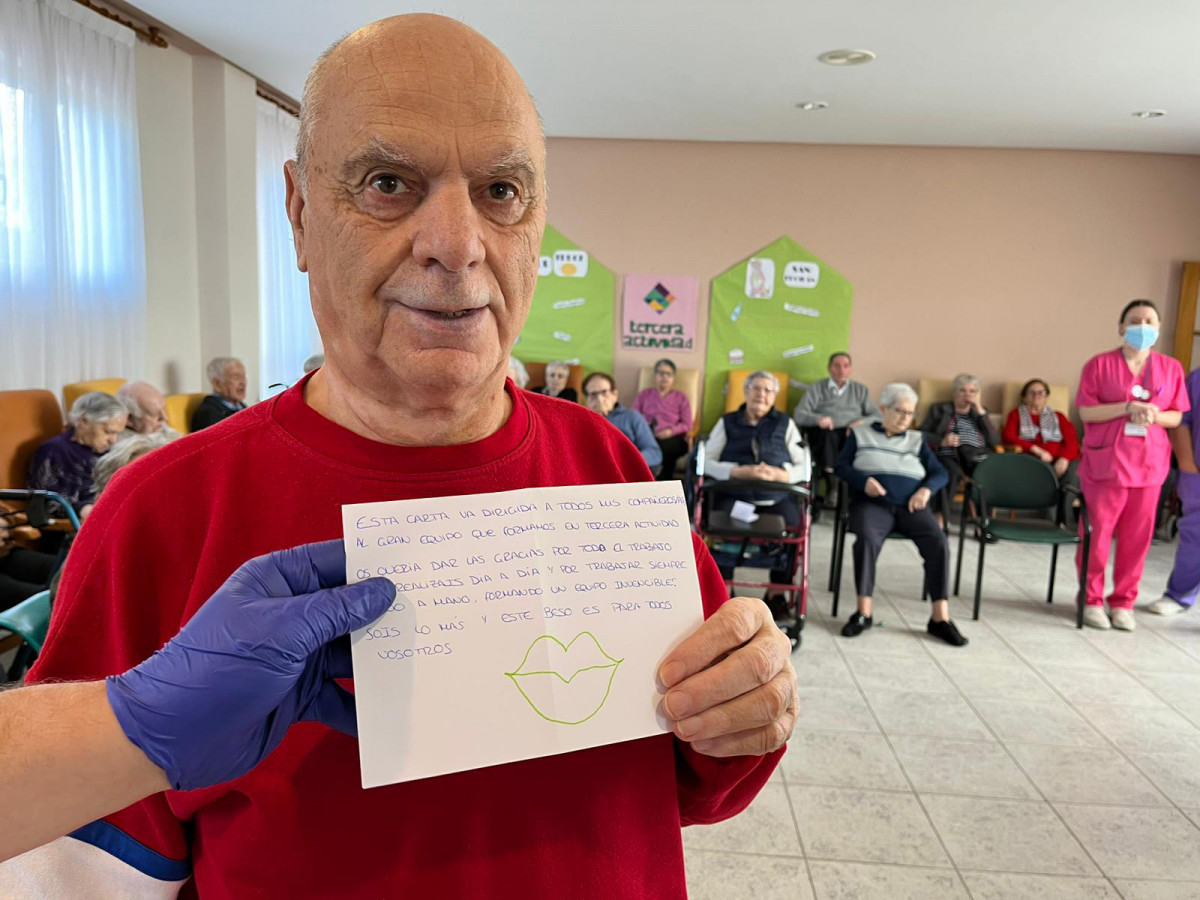 ESTA CARTA VA DIRIGIDIA A TODOS MIS COMPAÑEROS/AS
AL GRAN EQUIPO QUE FORMAMOS EN TERCERA ACTIVIDAD
OS QUERIA DAR LAS GRACIAS POR TODO EL TRABAJO
REALIZAIS DIA A DÍA Y POR TRABAJAR SIEMPRE
A MANO, FORMANDO UN EQUIPO INVENCIBLE;
SOIS LO MAS Y ESTE BESO ES PARA TODOS
VOSOTROS
tercera
actividad
SAN